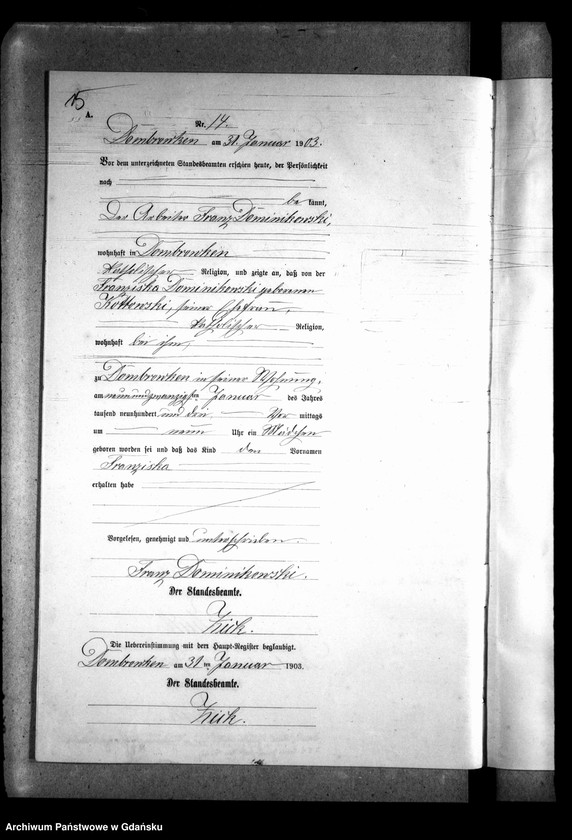 15
A.
Nr. 14.
Dombrowken am 31. Januar 1903.
Vor dem unterzeichneten Standesbeamten erschien heute, der Persönlichkeit
nach
be kannt,
Der Arbeiter Franz Dominikowski,
wohnhaft in Dombrowken
katholischer Religion, und zeigte an, daß von der
Franziska Dominikowski geborenen
seiner Ehefrau,
katholischer Religion,
wohnhaft bei ihm,
zu Dombrowken in seiner Wohnung,
am neunundzwanzigsten Januar des Jahres
tausend neunhundert und drei Vor mittags
um neun Uhr ein Mädchen
geboren worden sei und daß das Kind den Vornamen
Franziska
erhalten habe
Vorgelesen, genehmigt und unterschrieben.
Franz Dominikowski.
Der Standesbeamte.
Die Uebereinstimmung mit dem Haupt-Register beglaubigt.
Dombrowken am 31ten Januar 1903.
Der Standesbeamte.
Archiwum Państwowe w Gdańsku